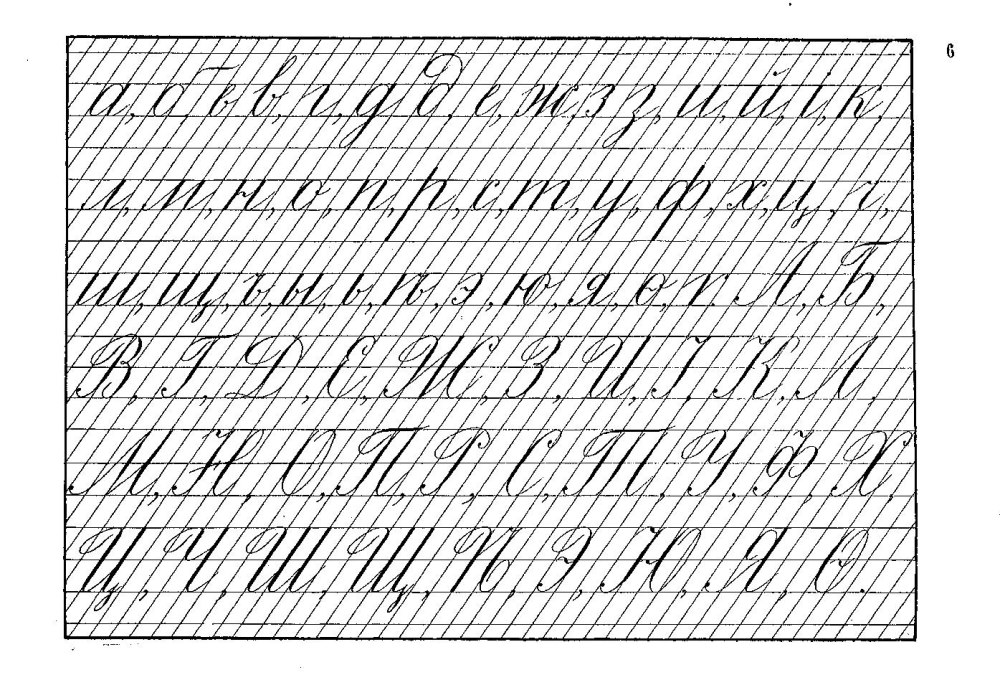 6
а, б в, г, д д, е, ж, з з, и, й, і, к,
л, м, н, о, п, р, с, т, у, ф, х, ц, ч,
ш, щ, ъ, ы, ь, ѣ, э, ю, я, ѳ, ѵ. А, Б,
В, Г, Д, Е, Ж, З, И, І, К, Л,
М, Н, О, П, Р, С, Т, У, Ф, Х,
Ц, Ч, Ш, Щ, Ѣ, Э, Ю, Я, Ѳ.